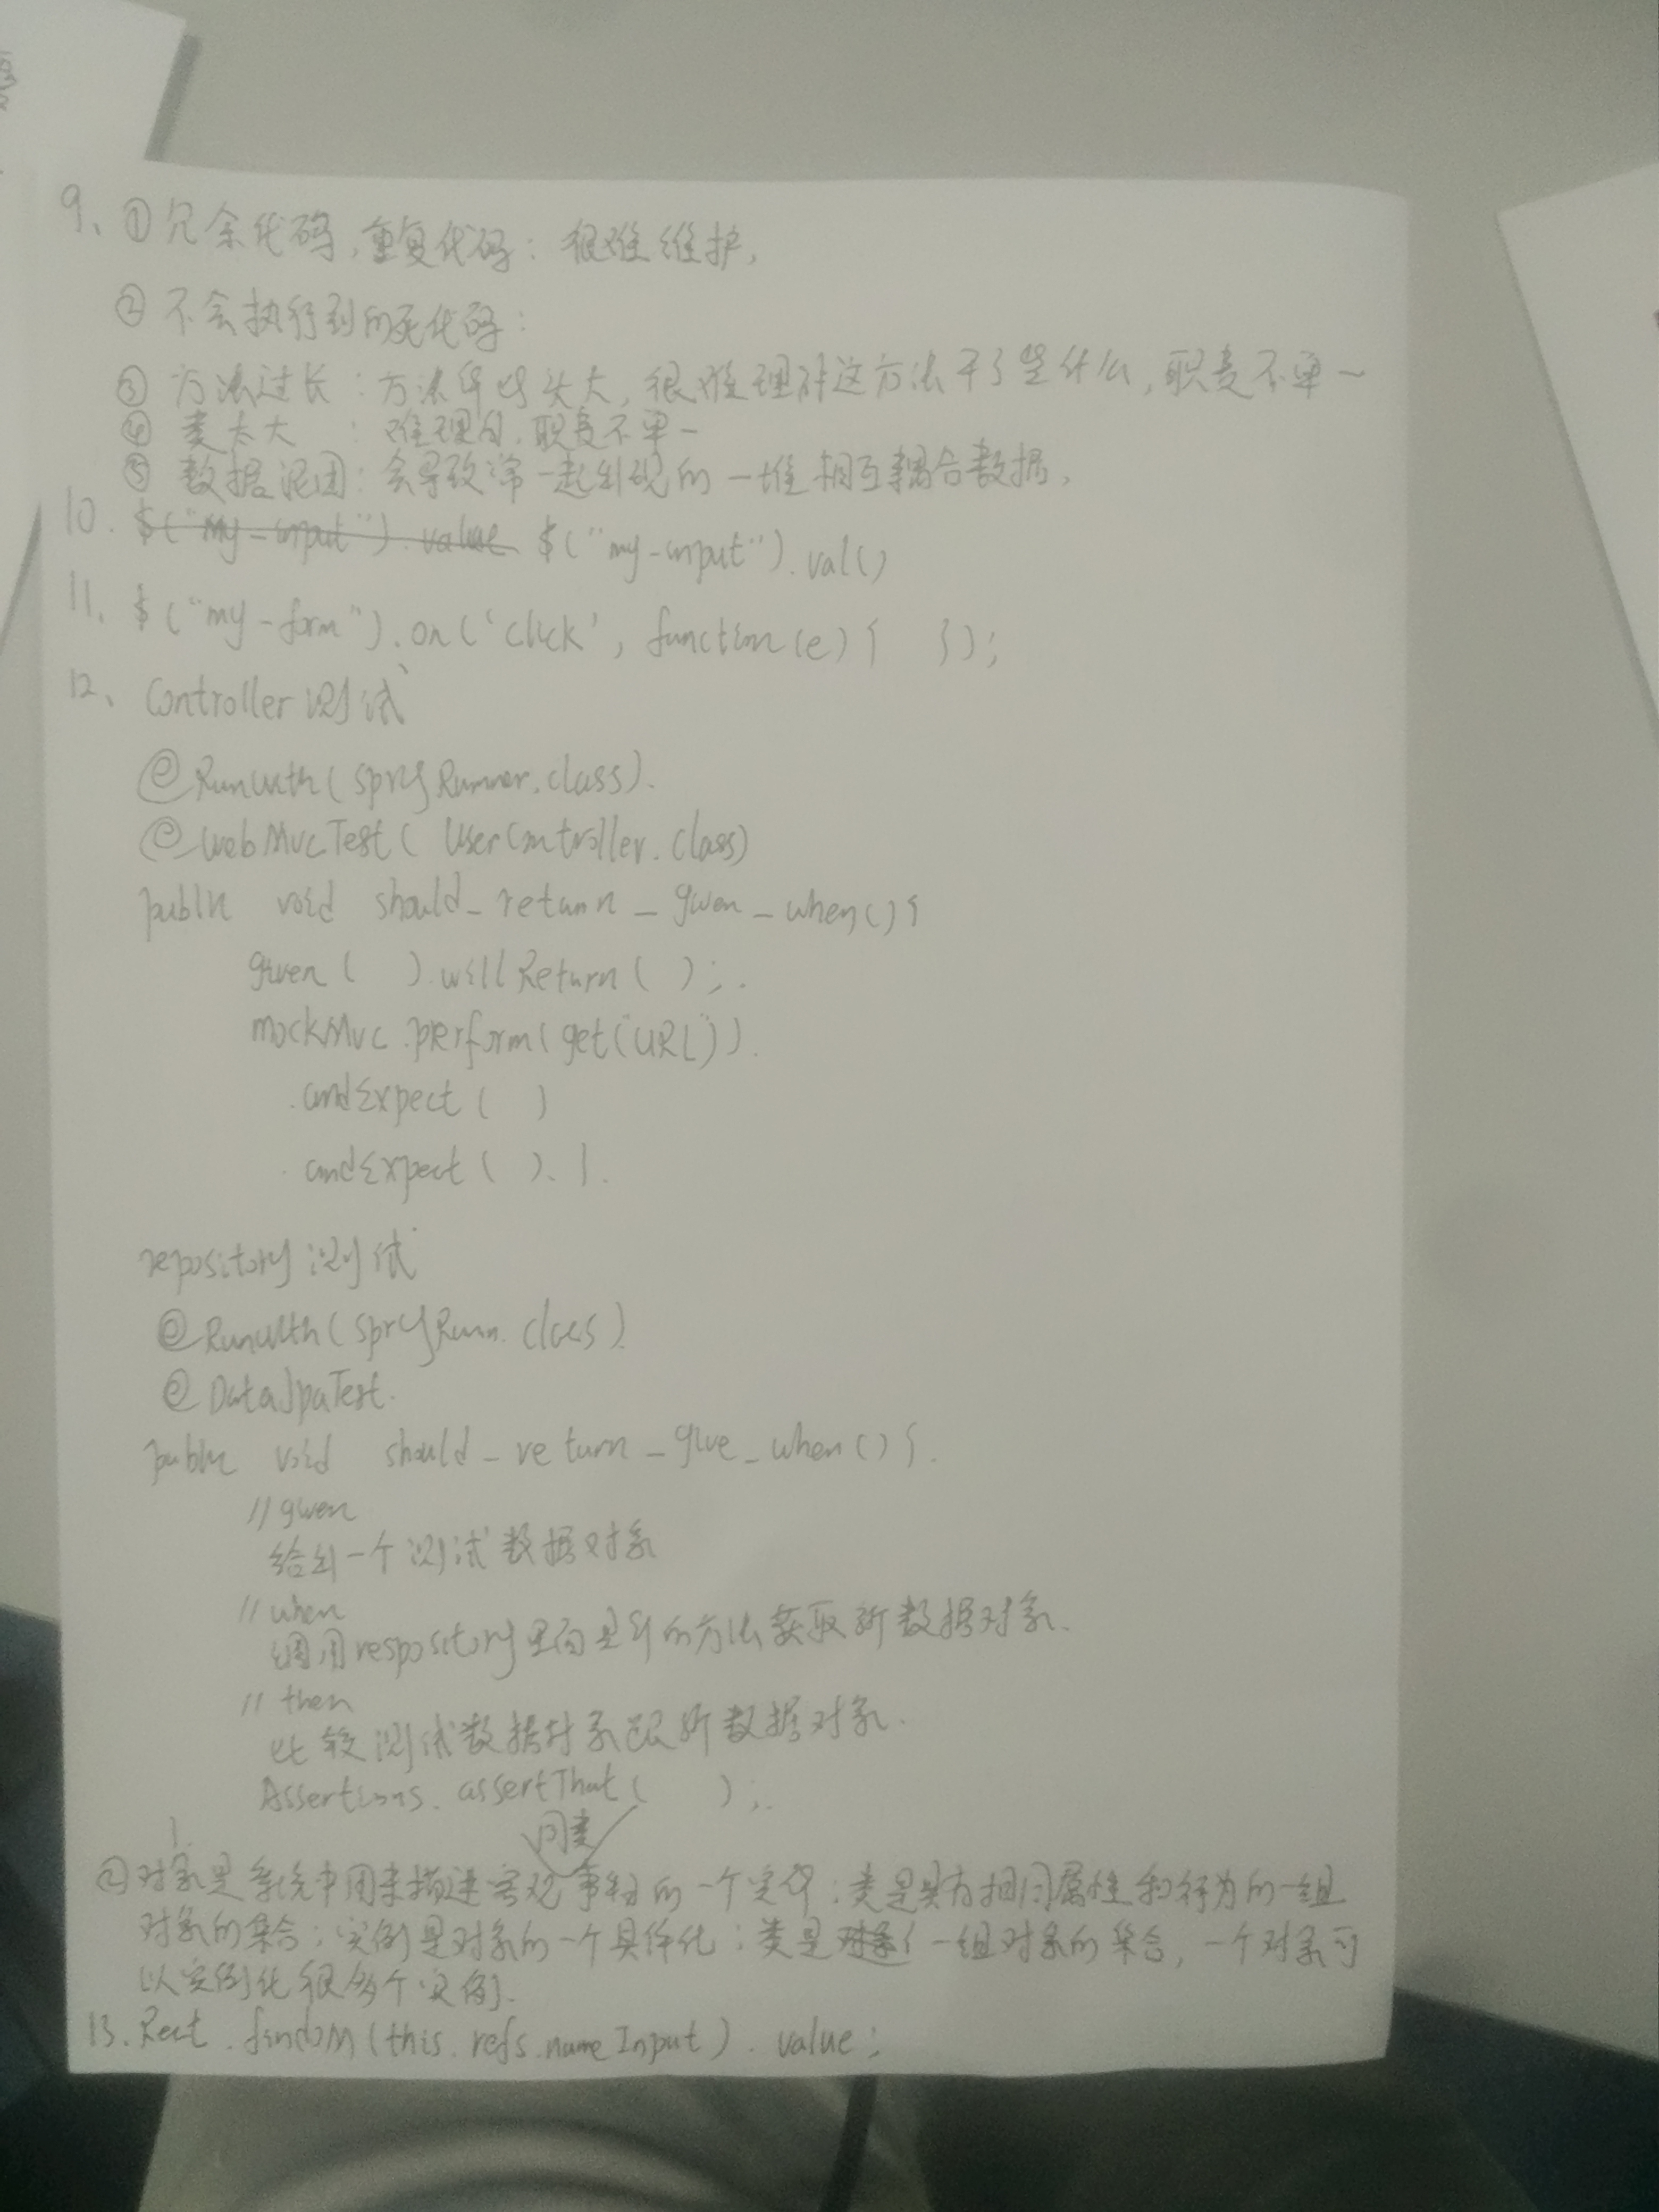 9、①冗余代码,重复代码：很难维护,
②不会执行到的死代码：
③方法过长：方法体太大,很难理解这方法干了些什么,职责不单一
④类太大：难理解,职责不单一
⑤数据泥团：会导致常一起出现的一堆相互耦合数据,
10. $("my-input").value $("my-input").val()
11. $("my-form").on('click', function(e){ });
12、Controller测试
@RunWith(SpringRunner.class).
@WebMvcTest(UserController.class)
public void should_return_given_when(){
given( ).willReturn( );.
mockMvc.perform(get("URL")).
.andExpect( )
.andExpect( ). }.
repository测试
@RunWith(SpringRunn.class).
@DataJpaTest.
public void should_return_give_when(){.
//given
给出一个测试数据对象
//when
调用respository里面的方法获取新数据对象.
//then
比较测试数据对象跟新数据对象.
Assertions.assertThat( );.
}.
同类
②对象是系统中用来描述客观事物的一个实体；类是具有相同属性和行为的一组
对象的集合；实例是对象的一个具体化；类是对象一组对象的集合,一个对象可
以实例化很多个实例.
13. Rect.finDOM(this.refs.nameInput).value;